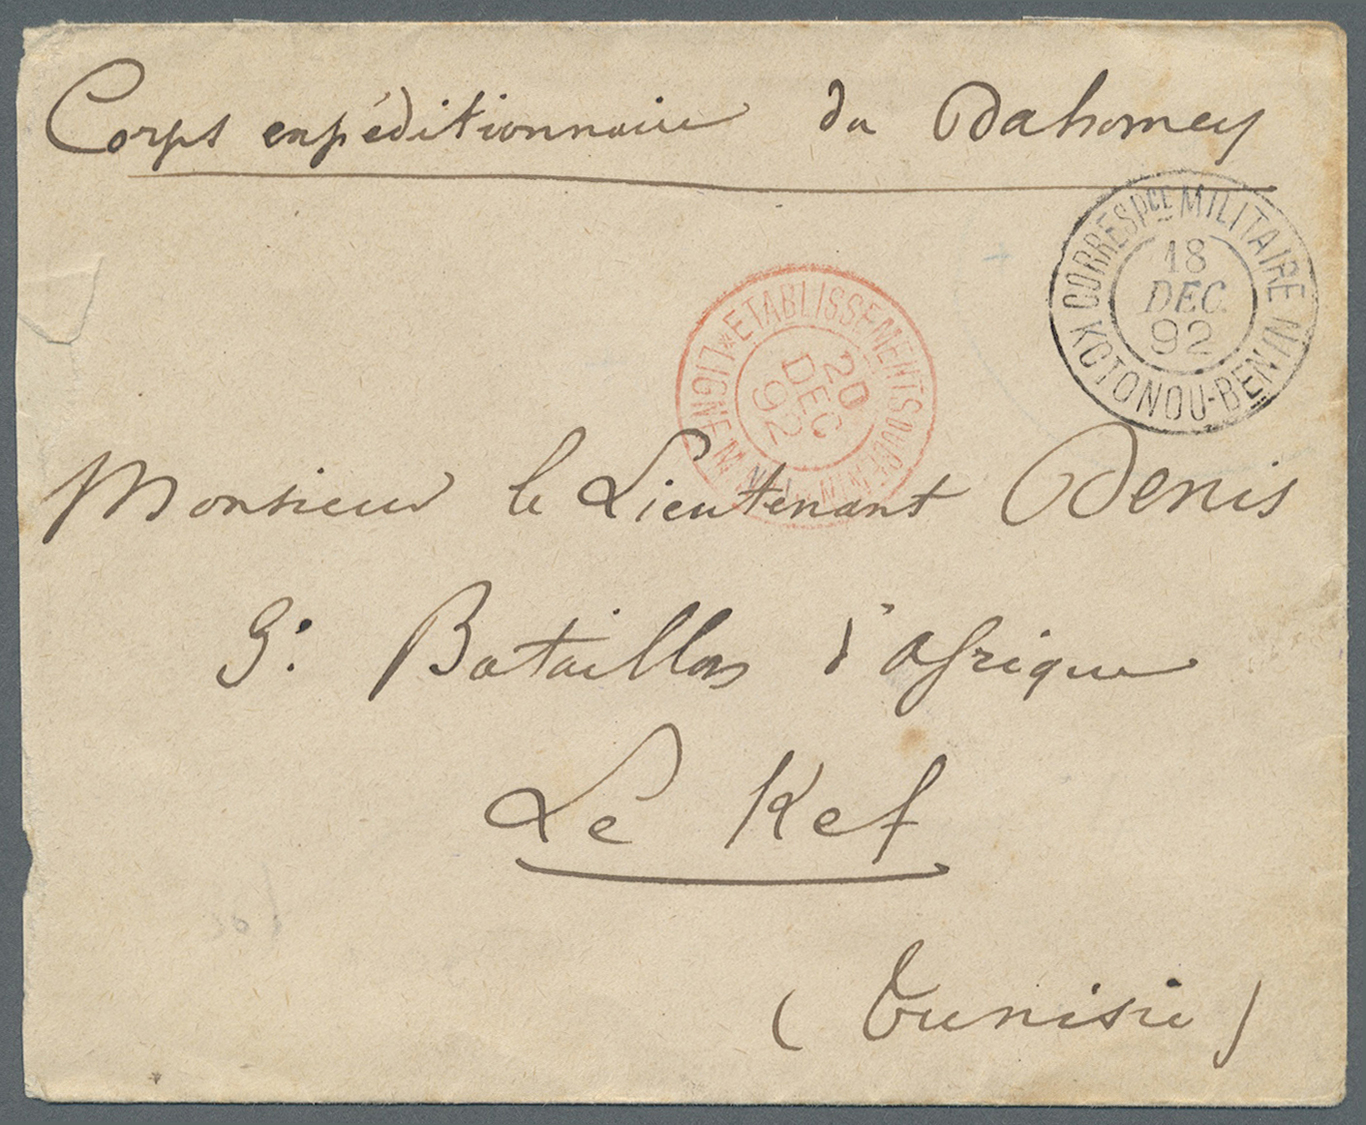 Corps expéditionnaire du Dahomey
CORRESPCE MILITAIRE
18
DEC.
92
KOTONOU-BENIN
*ETABLISSEMENTS DU BENIN
20
DEC
92
LIGNE N
Monsieur le Lieutenant Denis
Bataillon d'Afrique
Le Kef
(Tunisie)